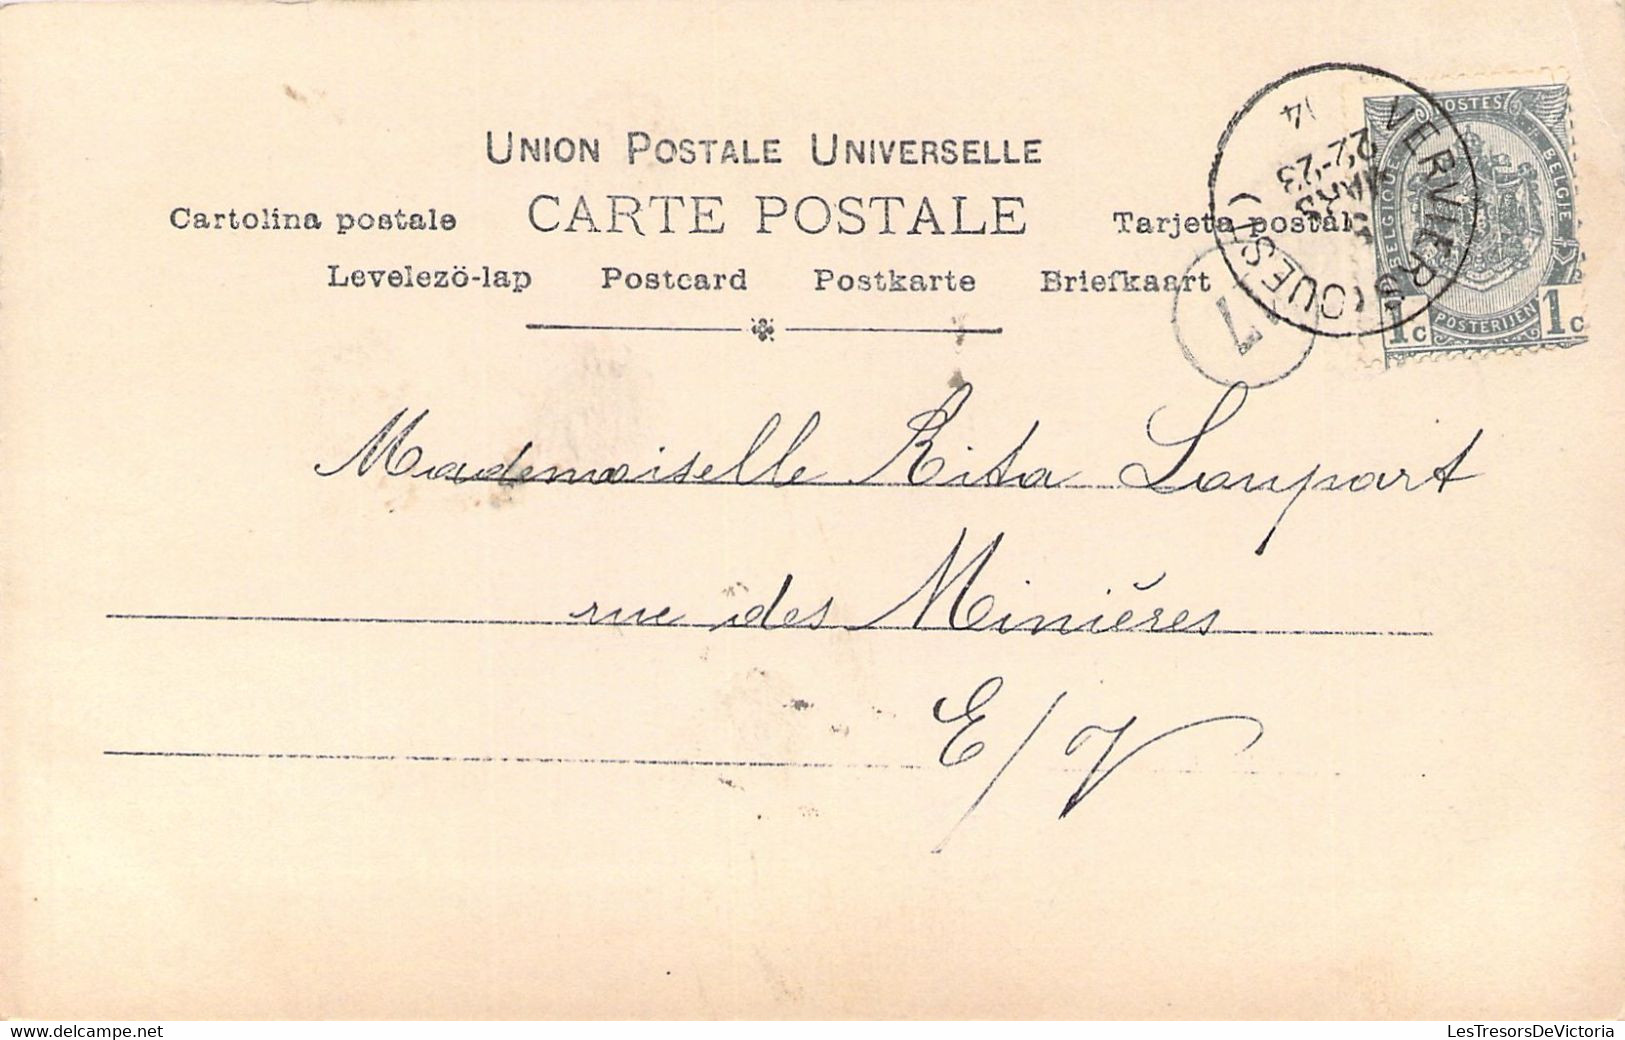 UNION POSTALE UNIVERSELLE
Cartolina postale CARTE POSTALE Tarjeta postal
Levelezö-lap Postcard Postkarte Briefkaart
POSTES
BELGIQUE BELGIË
1c POSTERIJEN 1c
VERVIERS (OUEST)
22-23
MARS
14
17
Mademoiselle Rita Loupart
rue des Minières
E/V
delcampe.net
LesTresorsDeVictoria